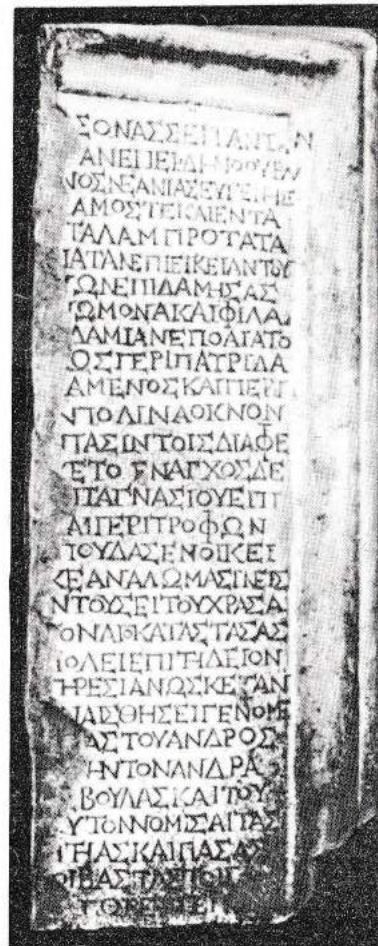 ΣΟΝΑΣΣΕΠΑΝΤΩΝ
ΑΝΕΠΕΙΔΗΠΟΟΥΡΑΝ
ΝΟΣΝΕΑΝΙΑΣΕΥΓΕΝΗΣ
ΑΜΟΣΤΕΚΑΙΕΝΤΑ
ΤΑΛΑΜΠΡΟΤΑΤΑ
ΙΑΤΑΝΕΠΙΕΙΚΕΙΑΝΤΟΥ
ΤΩΝΕΠΙΔΑΜΗΣΑΣ
ΓΩΜΟΝΑΚΑΙΦΙΛΑ
ΔΑΜΙΑΝΕΠΟΛΙΑΤΟ
ΟΣΠΕΡΙΠΑΤΡΙΔΑ
ΑΜΕΝΟΣΚΑΙΠΕΡΙ
ΝΠΟΛΙΝΑΟΚΝΟΝ
ΠΑΣΙΝΤΟΙΣΔΙΑΦΕ
ΕΤΟΕΝΑΓΧΟΣΔΕ
ΠΑΓΝΑΣΙΟΥΕΠΙ
ΑΙΠΕΡΙΤΡΟΦΩΝ
ΤΟΥΔΑΣΕΝΟΙΚΕΙ
ΚΕΑΝΑΛΩΜΑΣΙΝΕΙΣ
ΝΤΟΥΣΕΙΤΟΥΧΡΑΣΑ
ΟΝΑΠΟΚΑΤΑΣΤΑΣΑΣ
ΠΟΛΕΙΕΠΙΤΗΔΕΙΟΝ
ΤΗΡΕΣΙΑΝΩΣΚΕΤΑΝ
ΝΑΙΣΘΗΣΕΙΓΕΝΟΜΕ
ΑΣΤΟΥΑΝΔΡΟΣ
ΗΝΤΟΝΑΝΔΡΑ
ΒΟΥΛΑΣΚΑΙΤΟΥ
ΥΤΟΝΝΟΜΙΣΑΙΤΑΣ
ΙΤΗΑΣΚΑΙΠΑΣΑΣ